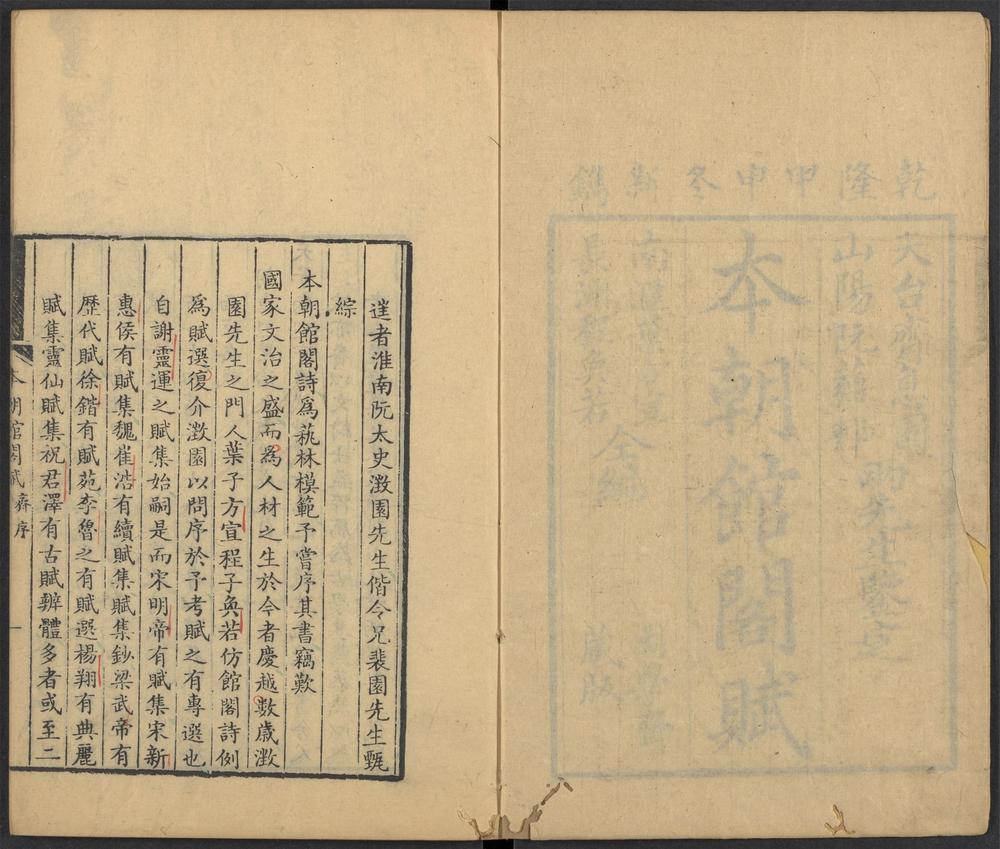 乾隆甲申冬新鐫
天台齊
山陽阮
先生鑒定
本朝館閣賦
南
仝編
藏版
者淮南阮太史澂園先生偕令兄裴園先生甄
綜
本朝館閣詩為蓺林模範予嘗序其書竊歎
國家文治之盛而為人材之生於今者慶越數歲澂
園先生之門人葉子方宣程子奐若仿館閣詩例
為賦選復介澂園以問序於予考賦之有專選也
自謝靈運之賦集始嗣是而宋明帝有賦集宋新
惠侯有賦集魏崔浩有續賦集賦集鈔梁武帝有
歷代賦徐鍇有賦苑李魯之有賦選楊翔有典麗
賦集靈仙賦集祝君澤有古賦辨體多者或至二
本朝館閣賦 齊序 一